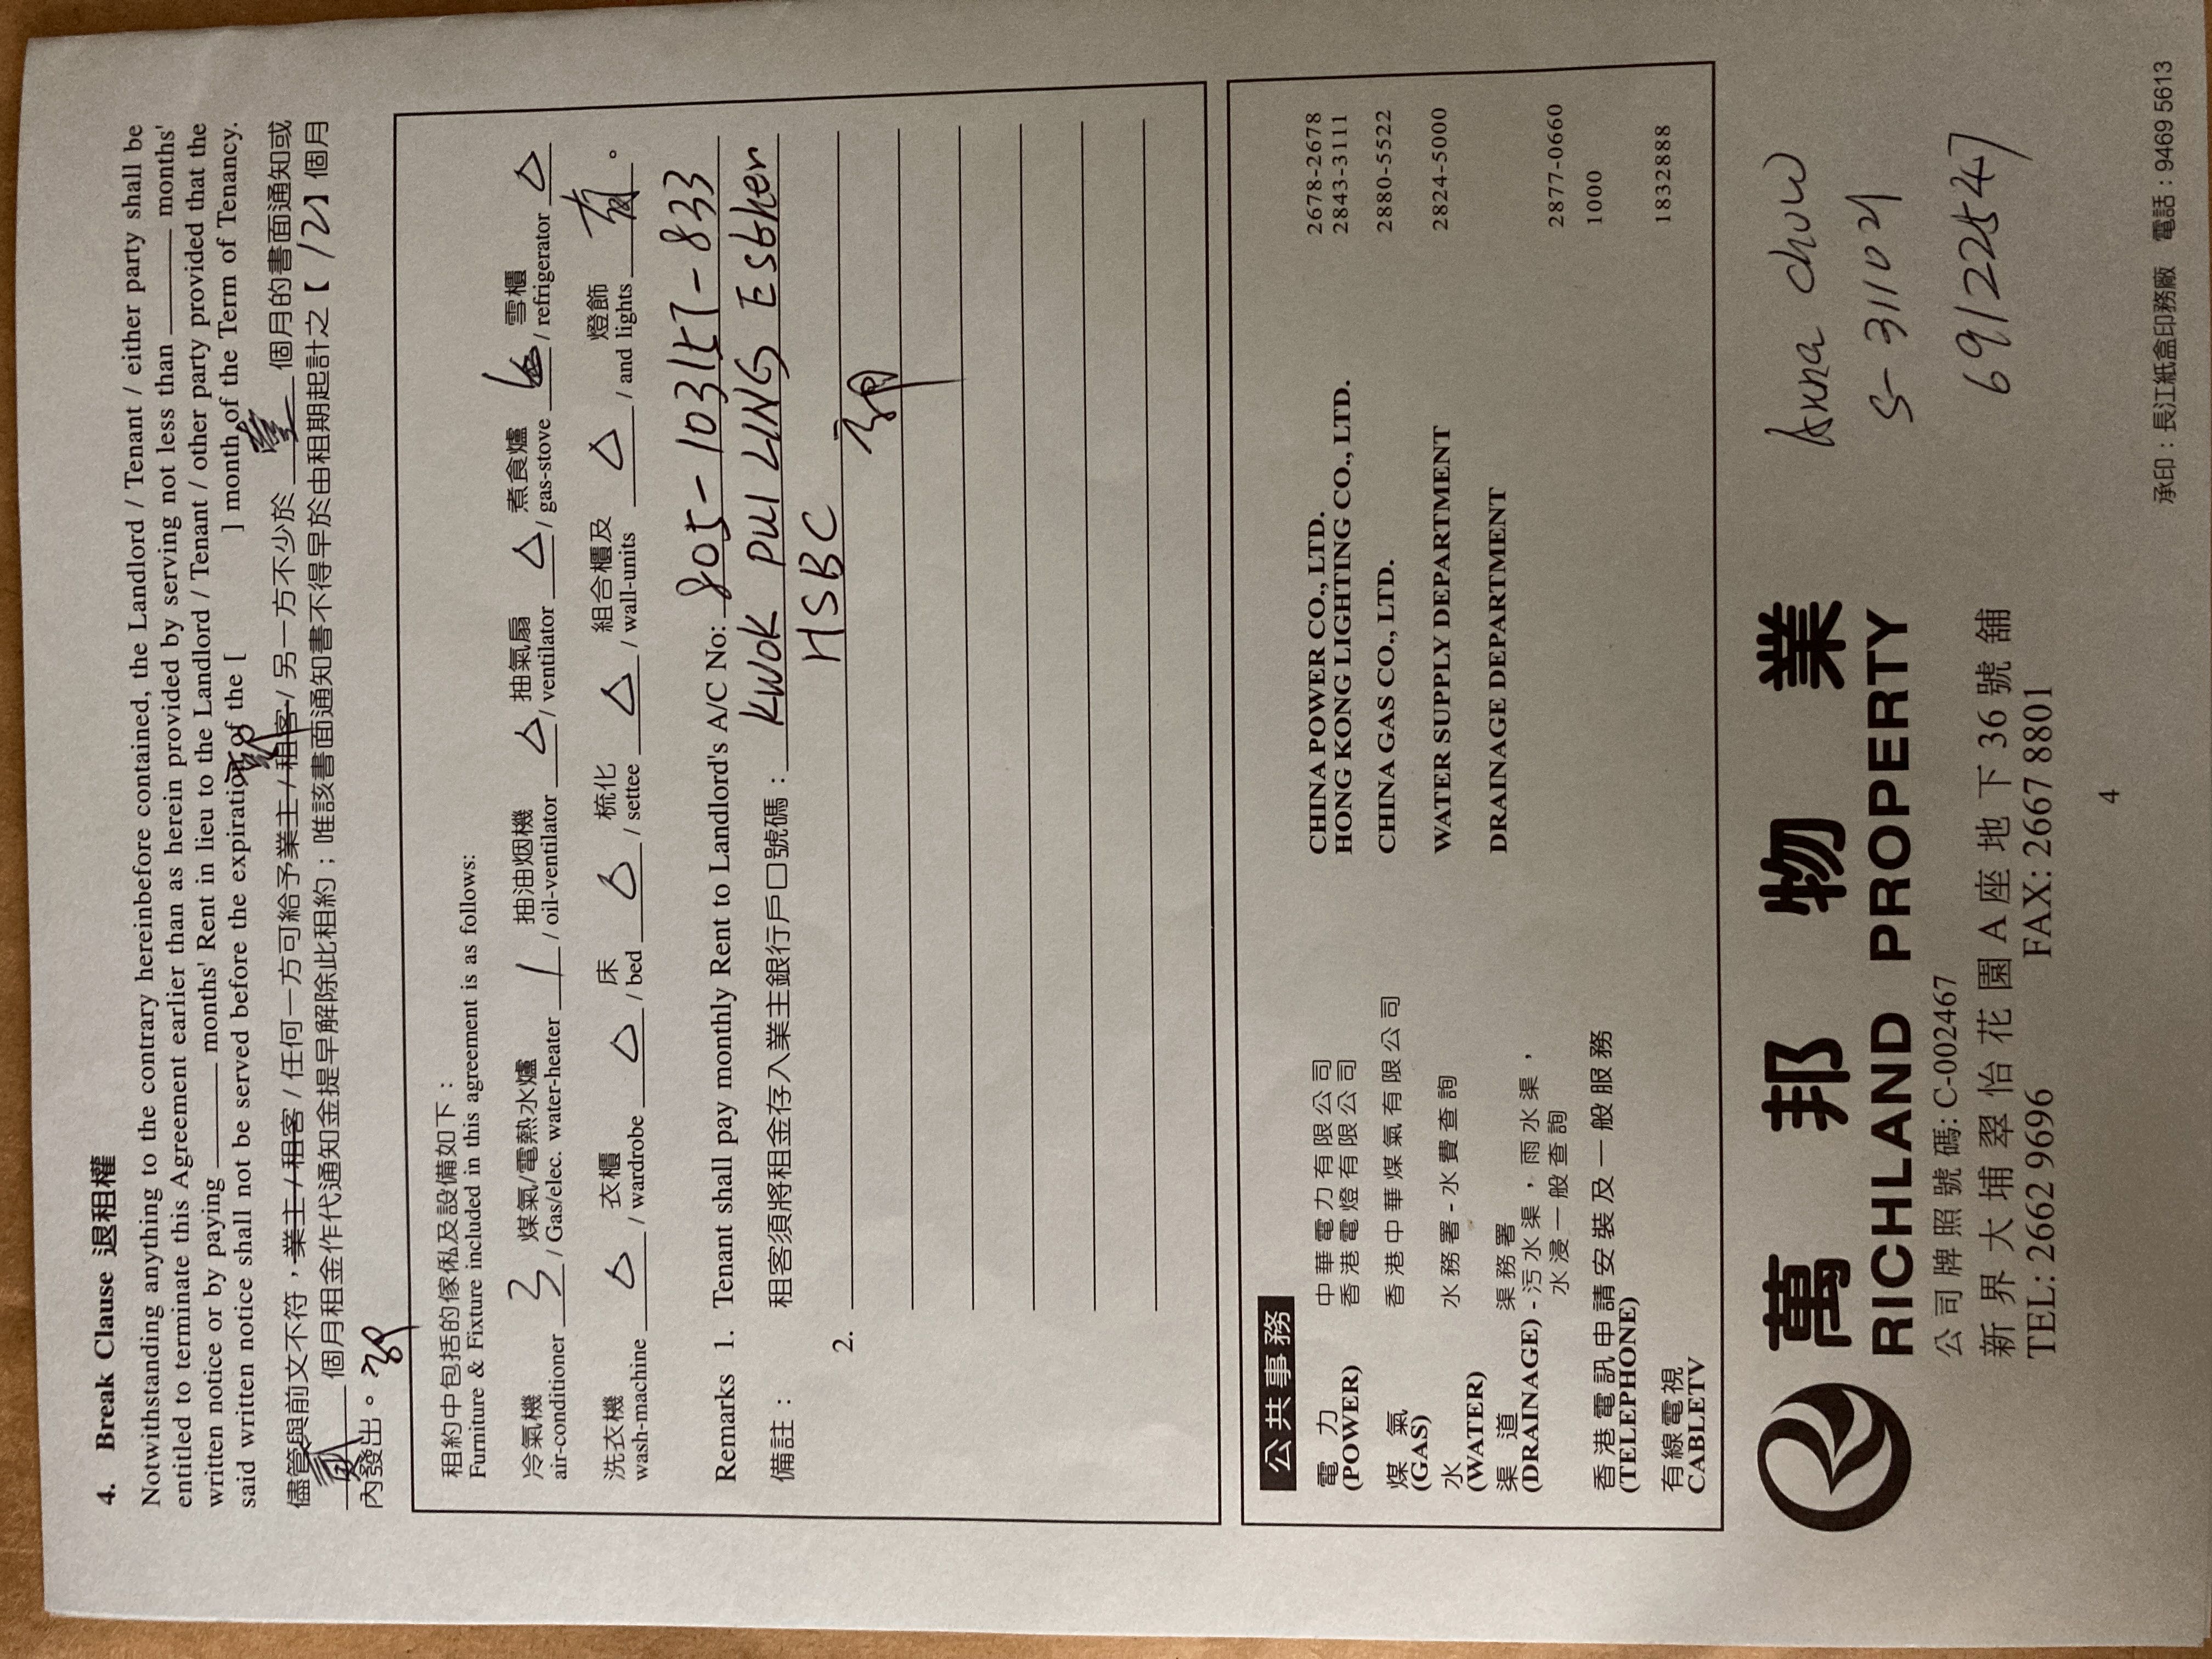 4. Break Clause 退租權
Notwithstanding anything to the contrary hereinbefore contained, the Landlord / Tenant / either party shall be
entitled to terminate this Agreement earlier than as herein provided by serving not less than ______ months'
written notice or by paying ______ months' Rent in lieu to the Landlord / Tenant / other party provided that the
said written notice shall not be served before the expiration of the [ ] month of the Term of Tenancy.
儘管與前文不符，業主/租客/任何一方可給予業主/租客/另一方不少於 壹 個月的書面通知或
個月租金作代通知金提早解除此租約；唯該書面通知書不得早於由租期起計之【12】個月
內發出。
租約中包括的傢俬及設備如下：
Furniture & Fixture included in this agreement is as follows:
冷氣機 3 煤氣/電熱水爐 1 抽油烟機 △ 抽氣扇 △ 煮食爐 雪櫃 △
air-conditioner / Gas/elec. water-heater / oil-ventilator / ventilator / gas-stove / refrigerator
洗衣機 △ 衣櫃 △ 床 △ 梳化 △ 組合櫃及 △ 燈飾 有。
wash-machine / wardrobe / bed / settee / wall-units / and lights
Remarks 1. Tenant shall pay monthly Rent to Landlord's A/C No: 805-103157-833
備註： 租客須將租金存入業主銀行戶口號碼： KWOK PUI LING Esther
HSBC
2.
公共事務
電力 中華電力有限公司 CHINA POWER CO., LTD. 2678-2678
(POWER) 香港電燈有限公司 HONG KONG LIGHTING CO., LTD. 2843-3111
煤氣 香港中華煤氣有限公司 CHINA GAS CO., LTD. 2880-5522
(GAS)
水 水務署-水費查詢 WATER SUPPLY DEPARTMENT 2824-5000
(WATER)
渠道 渠務署 DRAINAGE DEPARTMENT
(DRAINAGE) -污水渠，雨水渠，
水浸一般查詢 2877-0660
香港電訊申請安裝及一般服務 1000
(TELEPHONE)
有線電視 1832888
CABLETV
萬邦物業
RICHLAND PROPERTY
公司牌照號碼: C-002467
新界大埔翠怡花園A座地下36號舖
TEL: 2662 9696 FAX: 2667 8801
Anna Chow
S-311021
69122547
4
承印：長江紙盒印務廠 電話：9469 5613